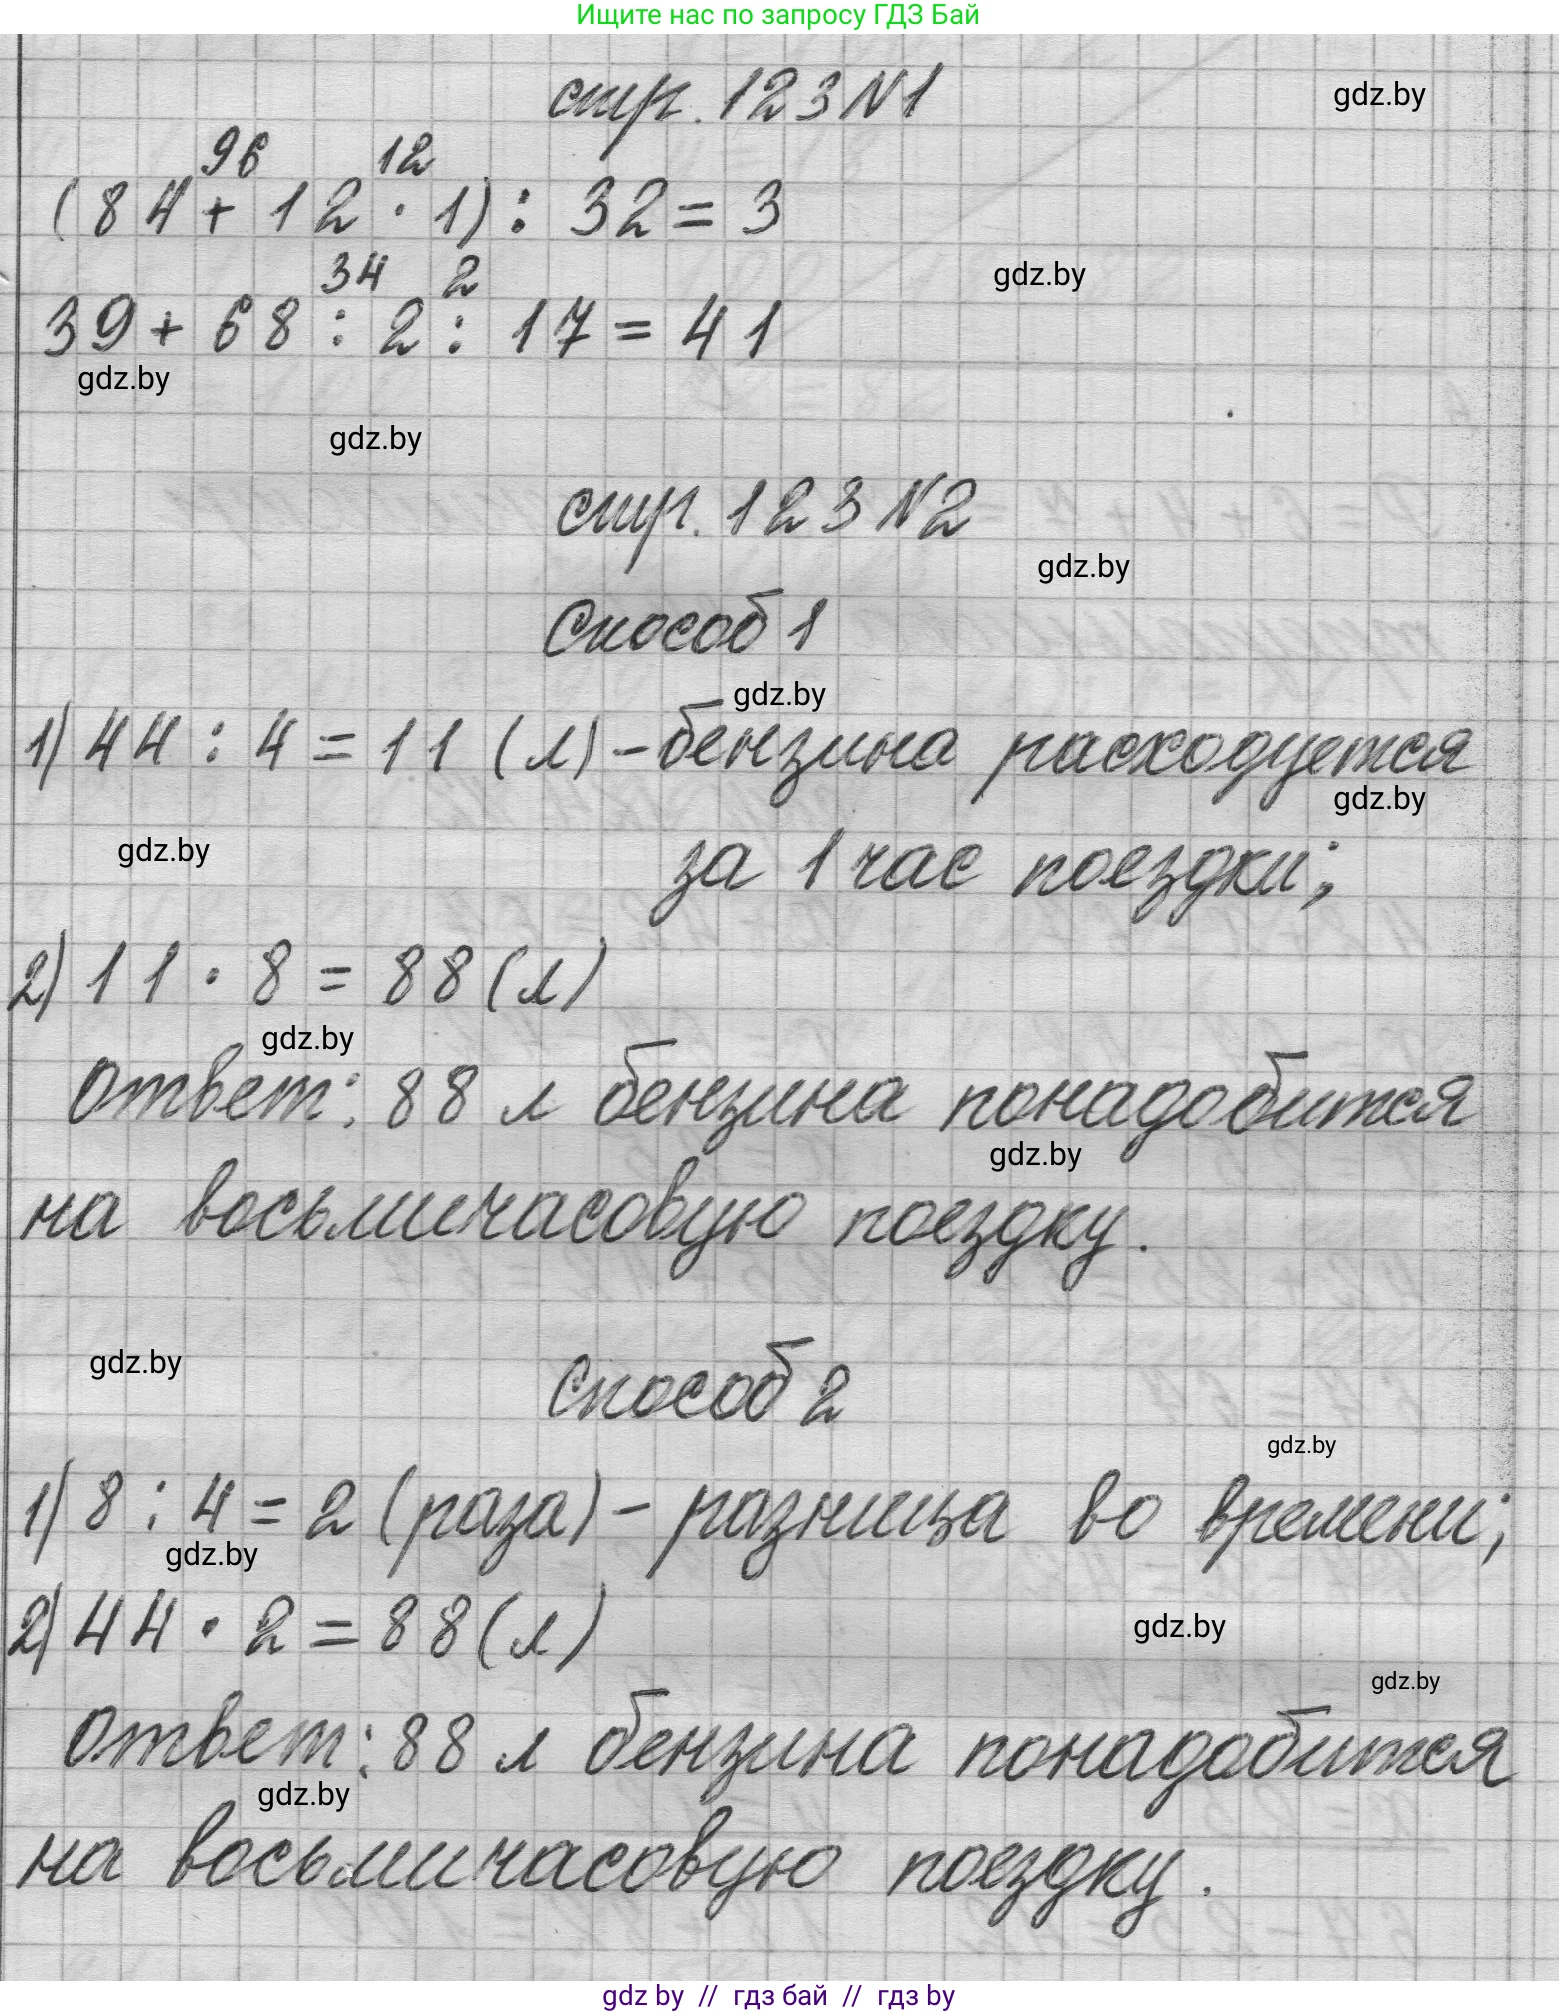 Ищите нас по запросу ГДЗ Бай
стр. 123 N1
gdz.by
96 12
(84 + 12 · 1) : 32 = 3
34 2
gdz.by
39 + 68 : 2 : 17 = 41
gdz.by
gdz.by
стр. 123 N2
gdz.by
Способ 1
gdz.by
1) 44 : 4 = 11 (л) - бензина расходуется
gdz.by
gdz.by
за 1 час поездки;
2) 11 · 8 = 88 (л)
gdz.by
Ответ: 88 л бензина понадобится
gdz.by
на восьмичасовую поездку.
gdz.by
Способ 2
gdz.by
1) 8 : 4 = 2 (раза) - разница во времени;
gdz.by
2) 44 · 2 = 88 (л)
gdz.by
gdz.by
Ответ: 88 л бензина понадобится
gdz.by
на восьмичасовую поездку.
gdz by // гдз бай // гдз by